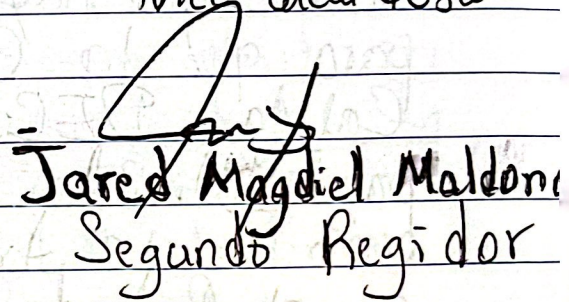 Jared Magdiel Maldon
Segundo Regidor